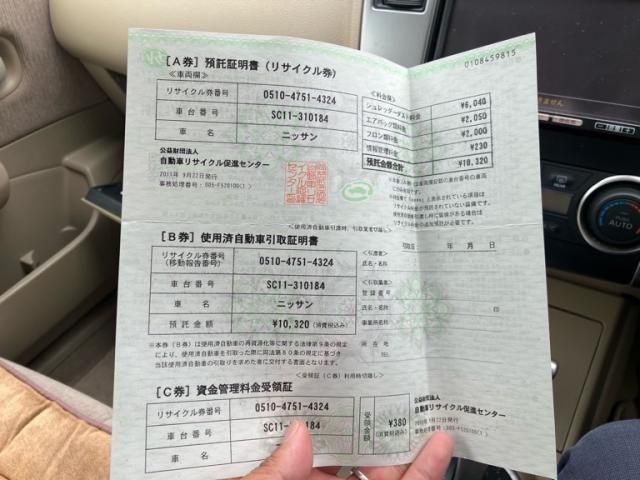 0108459815
[A券] 預託証明書 (リサイクル券)
≪車両欄≫
リサイクル券番号 0510-4751-4324
車台番号 SC11-310184
車名 ニッサン
≪料金欄≫
シュレッダーダスト料金 ¥6,040
エアバッグ類料金 ¥2,050
フロン類料金 ¥2,000
情報管理料金 ¥230
預託金額合計 ¥10,320
公益財団法人
自動車リサイクル促進センター
2011年 9月22日発行
<使用済自動車引渡時、引取業者切離し>
[B券] 使用済自動車引取証明書
リサイクル券番号
(移動報告番号) 0510-4751-4324
車台番号 SC11-310184
車名 ニッサン
預託金額 ¥10,320 (消費税込み)
引取日 年 月 日
≪引渡者≫
氏名・名称
≪引取業者≫
登録番号
氏名・名称 印
事業所名
所在地
TEL
※本券(B券)は使用済自動車の再資源化等に関する法律第9条の規定
により、使用済自動車を引取った際に同法第80条の規定に基づき
当該使用済自動車の引取りを求めた者に交付する書面となります。
<受領証(C券)利用時切離し>
[C券] 資金管理料金受領証
リサイクル券番号 0510-4751-4324
車台番号 SC11-310184
車名 ニッサン
受領金額 ¥380
(消費税込み)
公益財団法人
自動車リサイクル促進センター
2011年 9月22日発行
AUTO